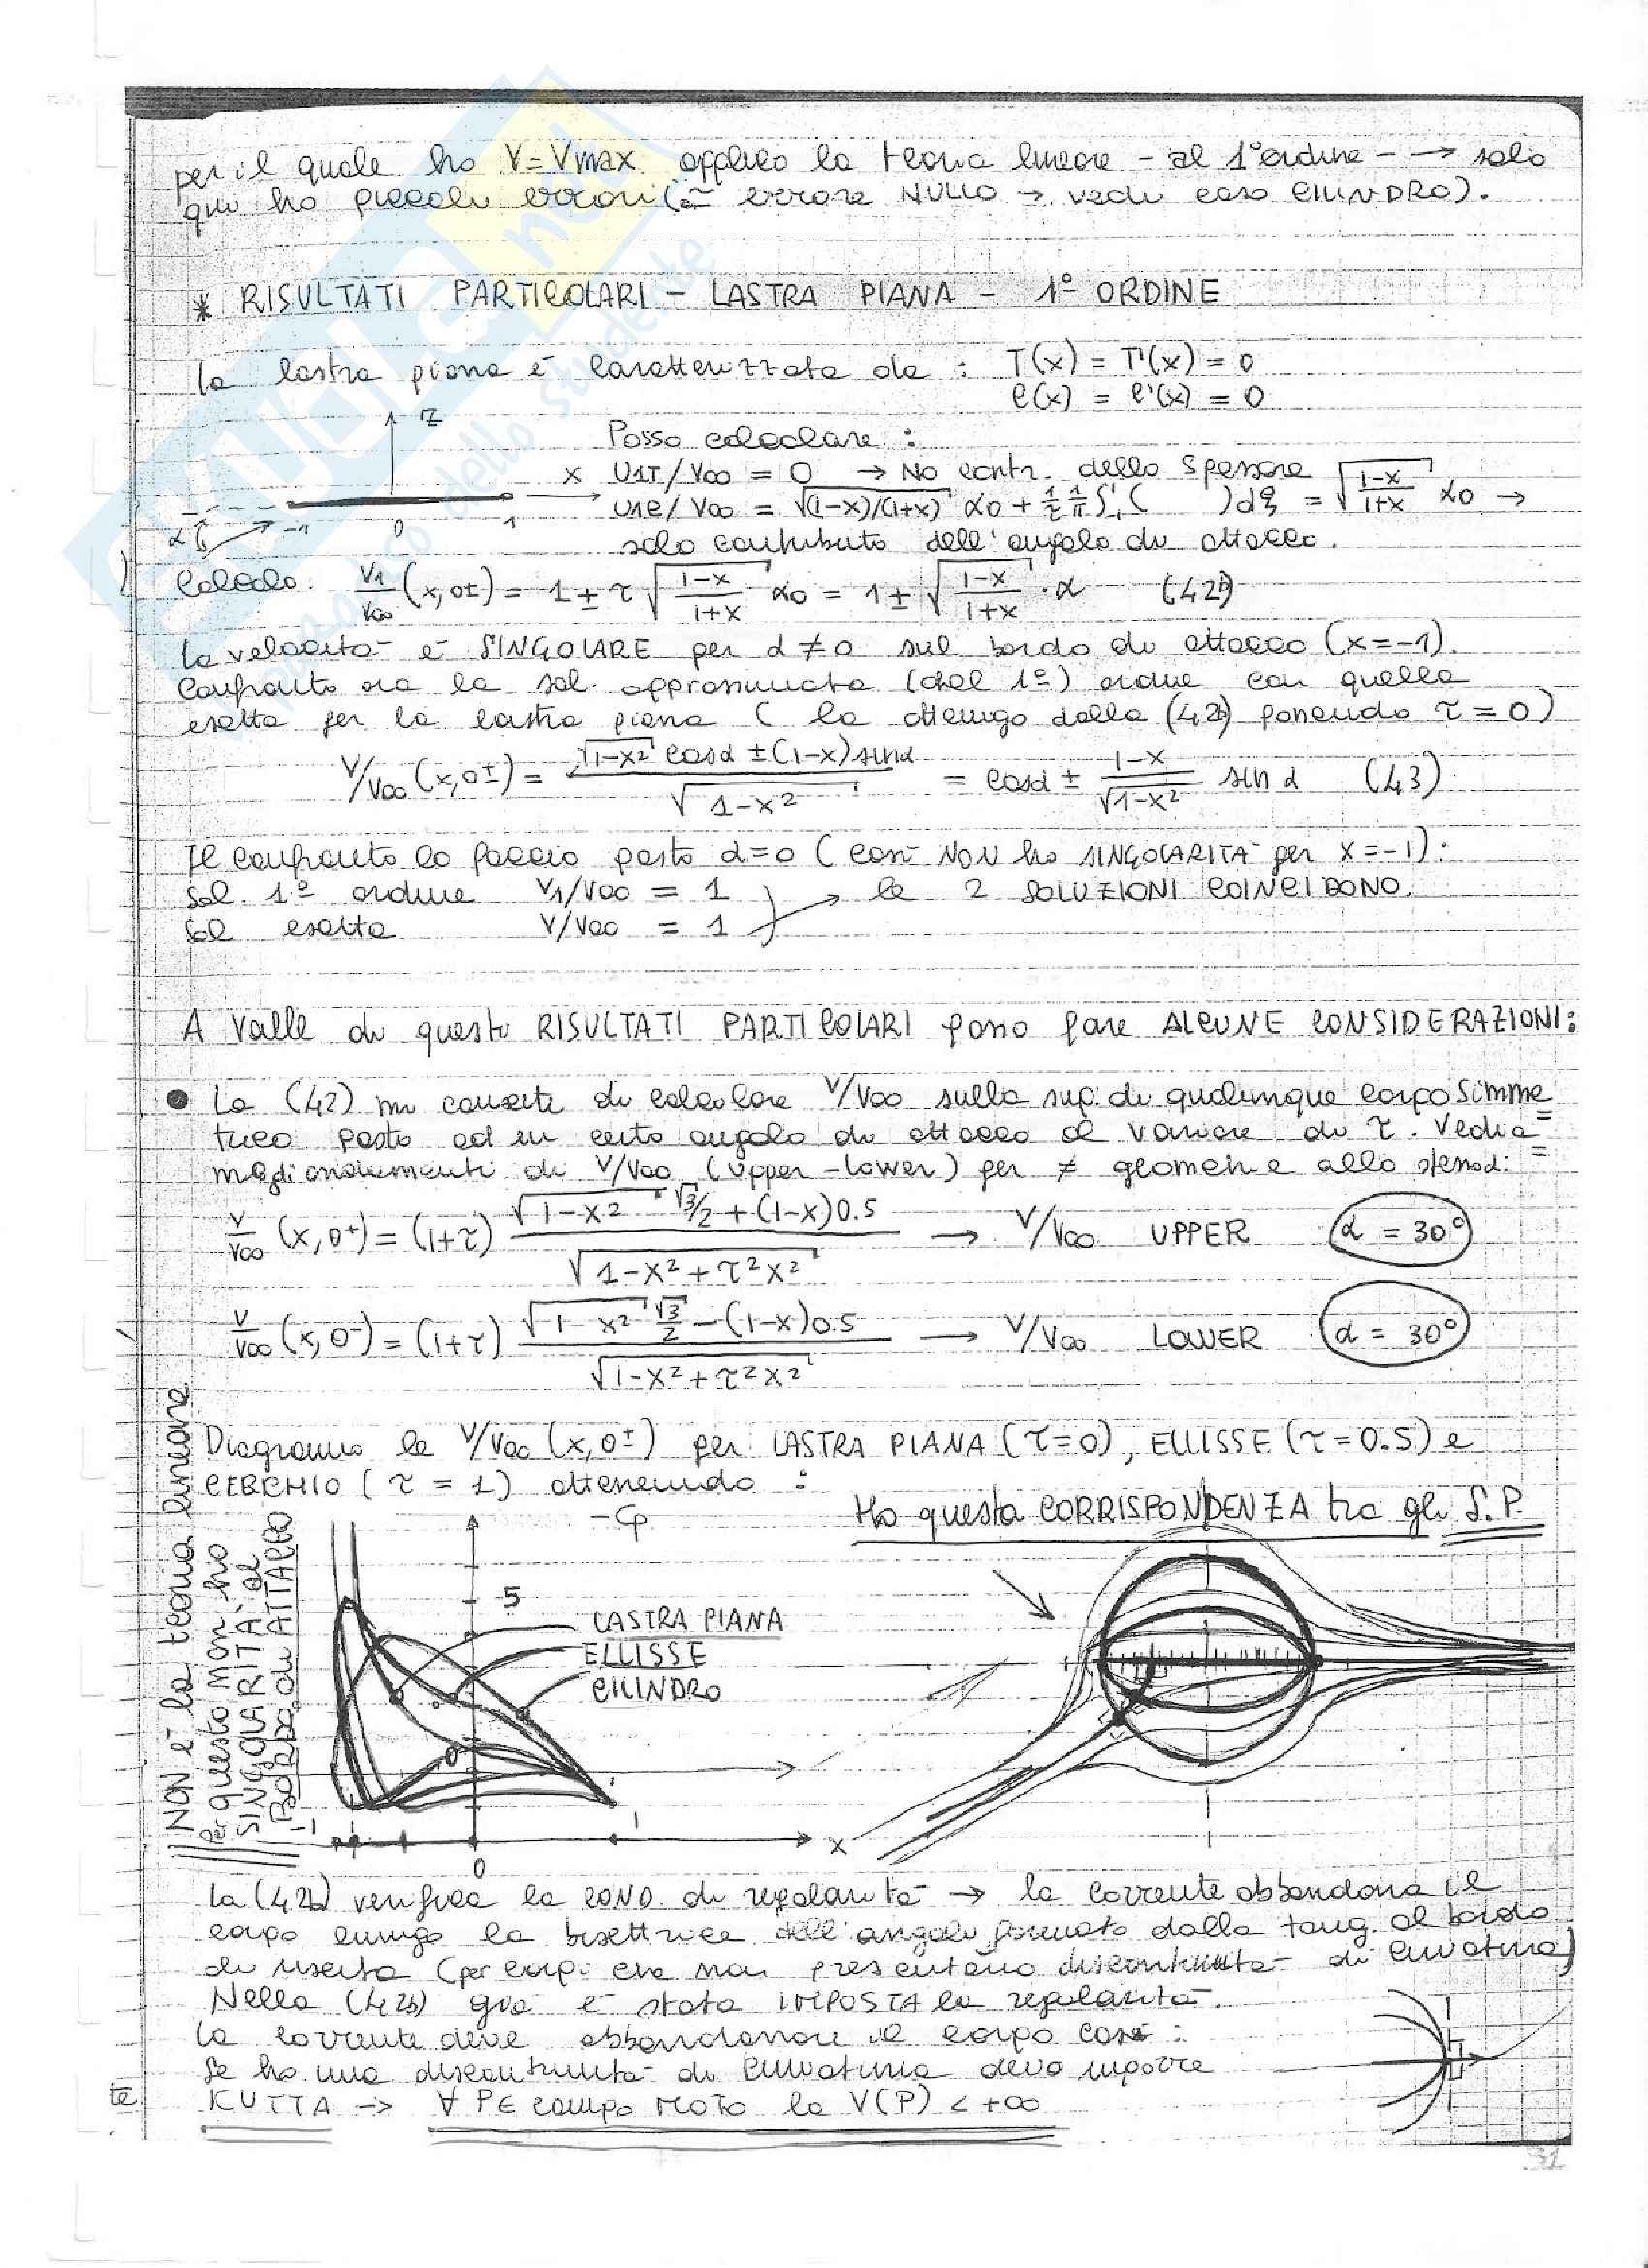 per il quale ho V=Vmax applico la teoria lineare - al 1°ordine - → solo
qui ho piccoli errori (≃ errore NULLO → vedi caso CILINDRO).
* RISULTATI PARTICOLARI - LASTRA PIANA - 1° ORDINE
la lastra piana è caratterizzata da : T(x) = T'(x) = 0
C(x) = C'(x) = 0
Z
Posso calcolare :
x U1T/V∞ = 0 → No contr. dello spessore
U1C/V∞ = √(1-x)/(1+x) α0 + 1/2 1/π ∫ ( )dξ = √(1-x)/(1+x) α0 →
α -1 0 1
solo contributo dell'angolo di attacco.
Calcolo V1/V∞ (x,0±) = 1 ± τ √(1-x)/(1+x) α0 = 1 ± √(1-x)/(1+x) · α (42b)
la velocità è SINGOLARE per α ≠ 0 sul bordo di attacco (x=-1).
Confronto ora la sol. approssimata (del 1°) ordine con quella
esatta per la lastra piana ( la ottengo dalla (42b) ponendo τ = 0)
V/V∞ (x,0±) = (√1-x² cosα ± (1-x) sinα)/√1-x² = cosα ± (1-x)/√1-x² sin α (43)
Il confronto lo faccio posto α=0 ( così NON ho SINGOLARITA' per x=-1) :
sol. 1° ordine V1/V∞ = 1
→ le 2 SOLUZIONI COINCIDONO.
sol esatta V/V∞ = 1
A valle di questi RISULTATI PARTICOLARI posso fare ALCUNE CONSIDERAZIONI:
• La (42) mi consente di calcolare V/V∞ sulla sup. di qualunque corpo simme=
trico posto ad un certo angolo di attacco al variare di τ. Vedia=
mo gli andamenti di V/V∞ (upper-lower) per ≠ geometrie allo stesso α:
V/V∞ (x,0+) = (1+τ) (√1-x² √3/2 + (1-x)0.5)/√1-x²+τ²x² → V/V∞ UPPER α = 30°
V/V∞ (x,0-) = (1+τ) (√1-x² √3/2 - (1-x)0.5)/√1-x²+τ²x² → V/V∞ LOWER α = 30°
Diagrammo le V/V∞ (x,0±) per LASTRA PIANA (τ=0), ELLISSE (τ=0.5) e
CERCHIO (τ = 1) ottenendo :
NON è la teoria lineare
Per questo non ho
SINGOLARITA' al
BORDO di ATTACCO
-Cp
5
LASTRA PIANA
ELLISSE
CILINDRO
0
-1
1
x
0
Ho questa CORRISPONDENZA tra gli S.P.
la (42b) verifica la COND. di regolarità → la corrente abbandona il
corpo lungo la bisettrice dell'angolo formato dalla tang. al bordo
di uscita (per corpi che non presentano discontinuità di curvatura)
Nella (42b) già è stata IMPOSTA la regolarità.
la corrente deve abbandonare il corpo così :
Se ho una discontinuità di curvatura devo imporre
te
KUTTA → ∀ P∈ campo moto la V(P) < +∞
31